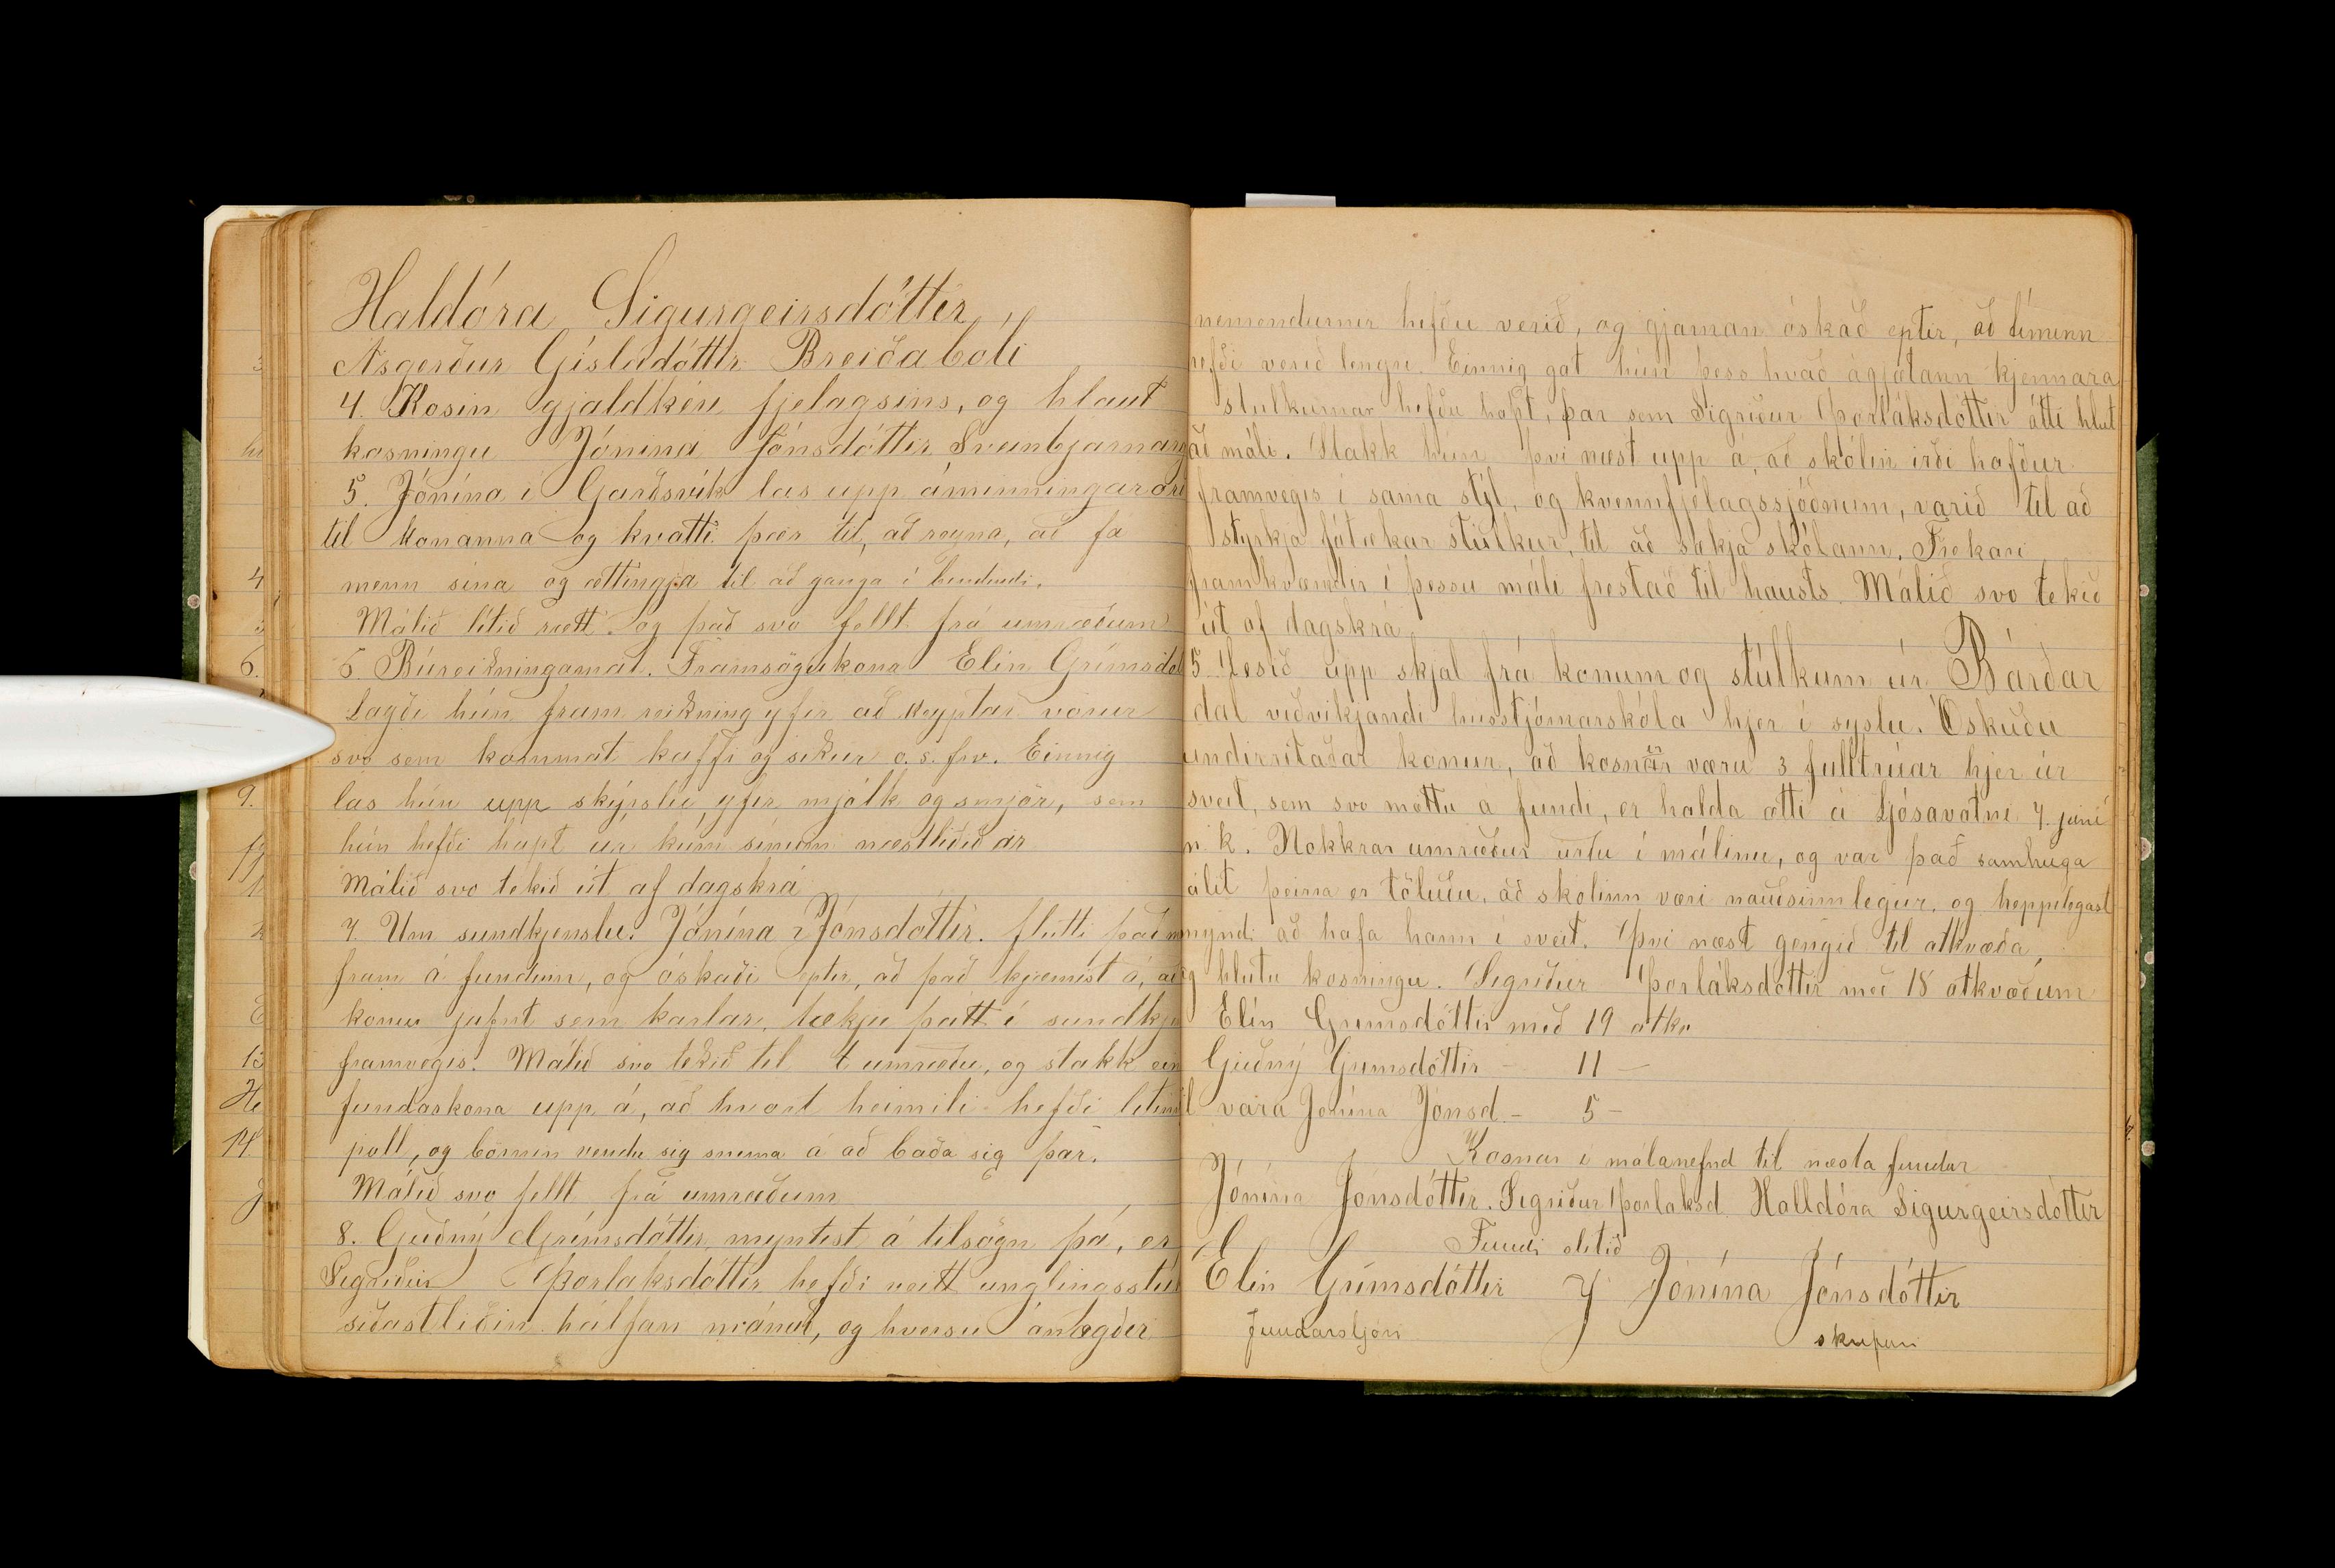 Haldóra Sigurgeirsdóttir
Ásgerður Gísladóttir Breiðabóli
4. Kosin gjaldkeri fjelagsins, og hlaut
kosningu Jónína Jónsdóttir Sveinbjarnarg
5. Jónína í Garðsvík las upp áminningarorð
til kvenanna og kvatti þær til, að reyna, að fá
menn sína og ættingja til að ganga í bindindi.
Málið lítið rætt og það svo fellt frá umræðum
6 Búreikningamál. Framsögukona Elín Grímsdót
Lagði hún fram reikning yfir að keyptar vörur
svo sem kornmat kaffi og sikur o.s.frv. Einnig
las hún upp skýrslu yfir mjólk og smjör, sem
hún hefði hapt úr kúm sínum næstliðið ár
Málið svo tekið út af dagskrá
7. Um sundkjenslu. Jónína Jónsdóttir. flutti það
fram á fundinn, og óskaði eptir, að það kjæmist á, að
konur jafnt sem karlar, tækju þátt í sundkje
framvegis. Málið svo tekið til umræðu, og stakk ein
fundarkona upp á, að hvort heimili hefði lítinn
poll, og börnin vendu sig snema á að baða sig þar.
Málið svo fellt frá umræðum
8. Guðný Grímsdóttir myntist á tilsögn þá, er
Sigríður Þorláksdóttir hefði veitt unglingsstúl
síðastliðin hálfan mánuð, og hversu ánægðir
nemendurnir hefðu verið, og gjarnan óskað eptir, að tíminn
hefði verið lengri. Einnig gat hún þess hvað ágjætann kjennara
stúlkurnar hefðu hapt, þar sem Sigríður Þorláksdóttir átti hlut
að máli. Stakk hún því næst upp á, að skólin irði hafður
framvegis í sama stýl, og kvennfjelagssjóðnum, varið til að
styrkja fátækar stúlkur, til að sækja skólann. Frekari
framkvæmdir í þessu máli frestað til hausts. Málið svo tekið
út af dagskrá
5. Lesið upp skjal frá konum og stúlkum úr Bárðar
dal viðvíkjandi hússtjórnarskóla hjer í syslu. Óskuðu
undirritaðar konur, að kosnar væru 3 fulltrúar hjer úr
sveit, sem svo mættu a fundi, er halda ætti á Ljósavatni 7. júní
n. k. Nokkrar umræður urðu í málinu, og var það samhuga
álit þeirra er töluðu, að skólinn væri nauðsinnlegur, og heppilegast
myndi að hafa hann í sveit. Því næst gengið til atkvæða,
og hlutu kosningu. Sigríður Þorláksdóttir með 18 atkvæðum
Elín Grímsdóttir með 19 atkv
Guðný Grímsdóttir – 11 –
til vara Jónína Jónsd – 5 –
Kosnar í málanefnd til næsta fundar
Jónína Jónsdóttir. Sigríður Þorláksd Halldóra Sigurgeirsdóttir
Fundi slitið
Elín Grímsdóttir Jónína Jónsdóttir
fundarstjóri skrifari